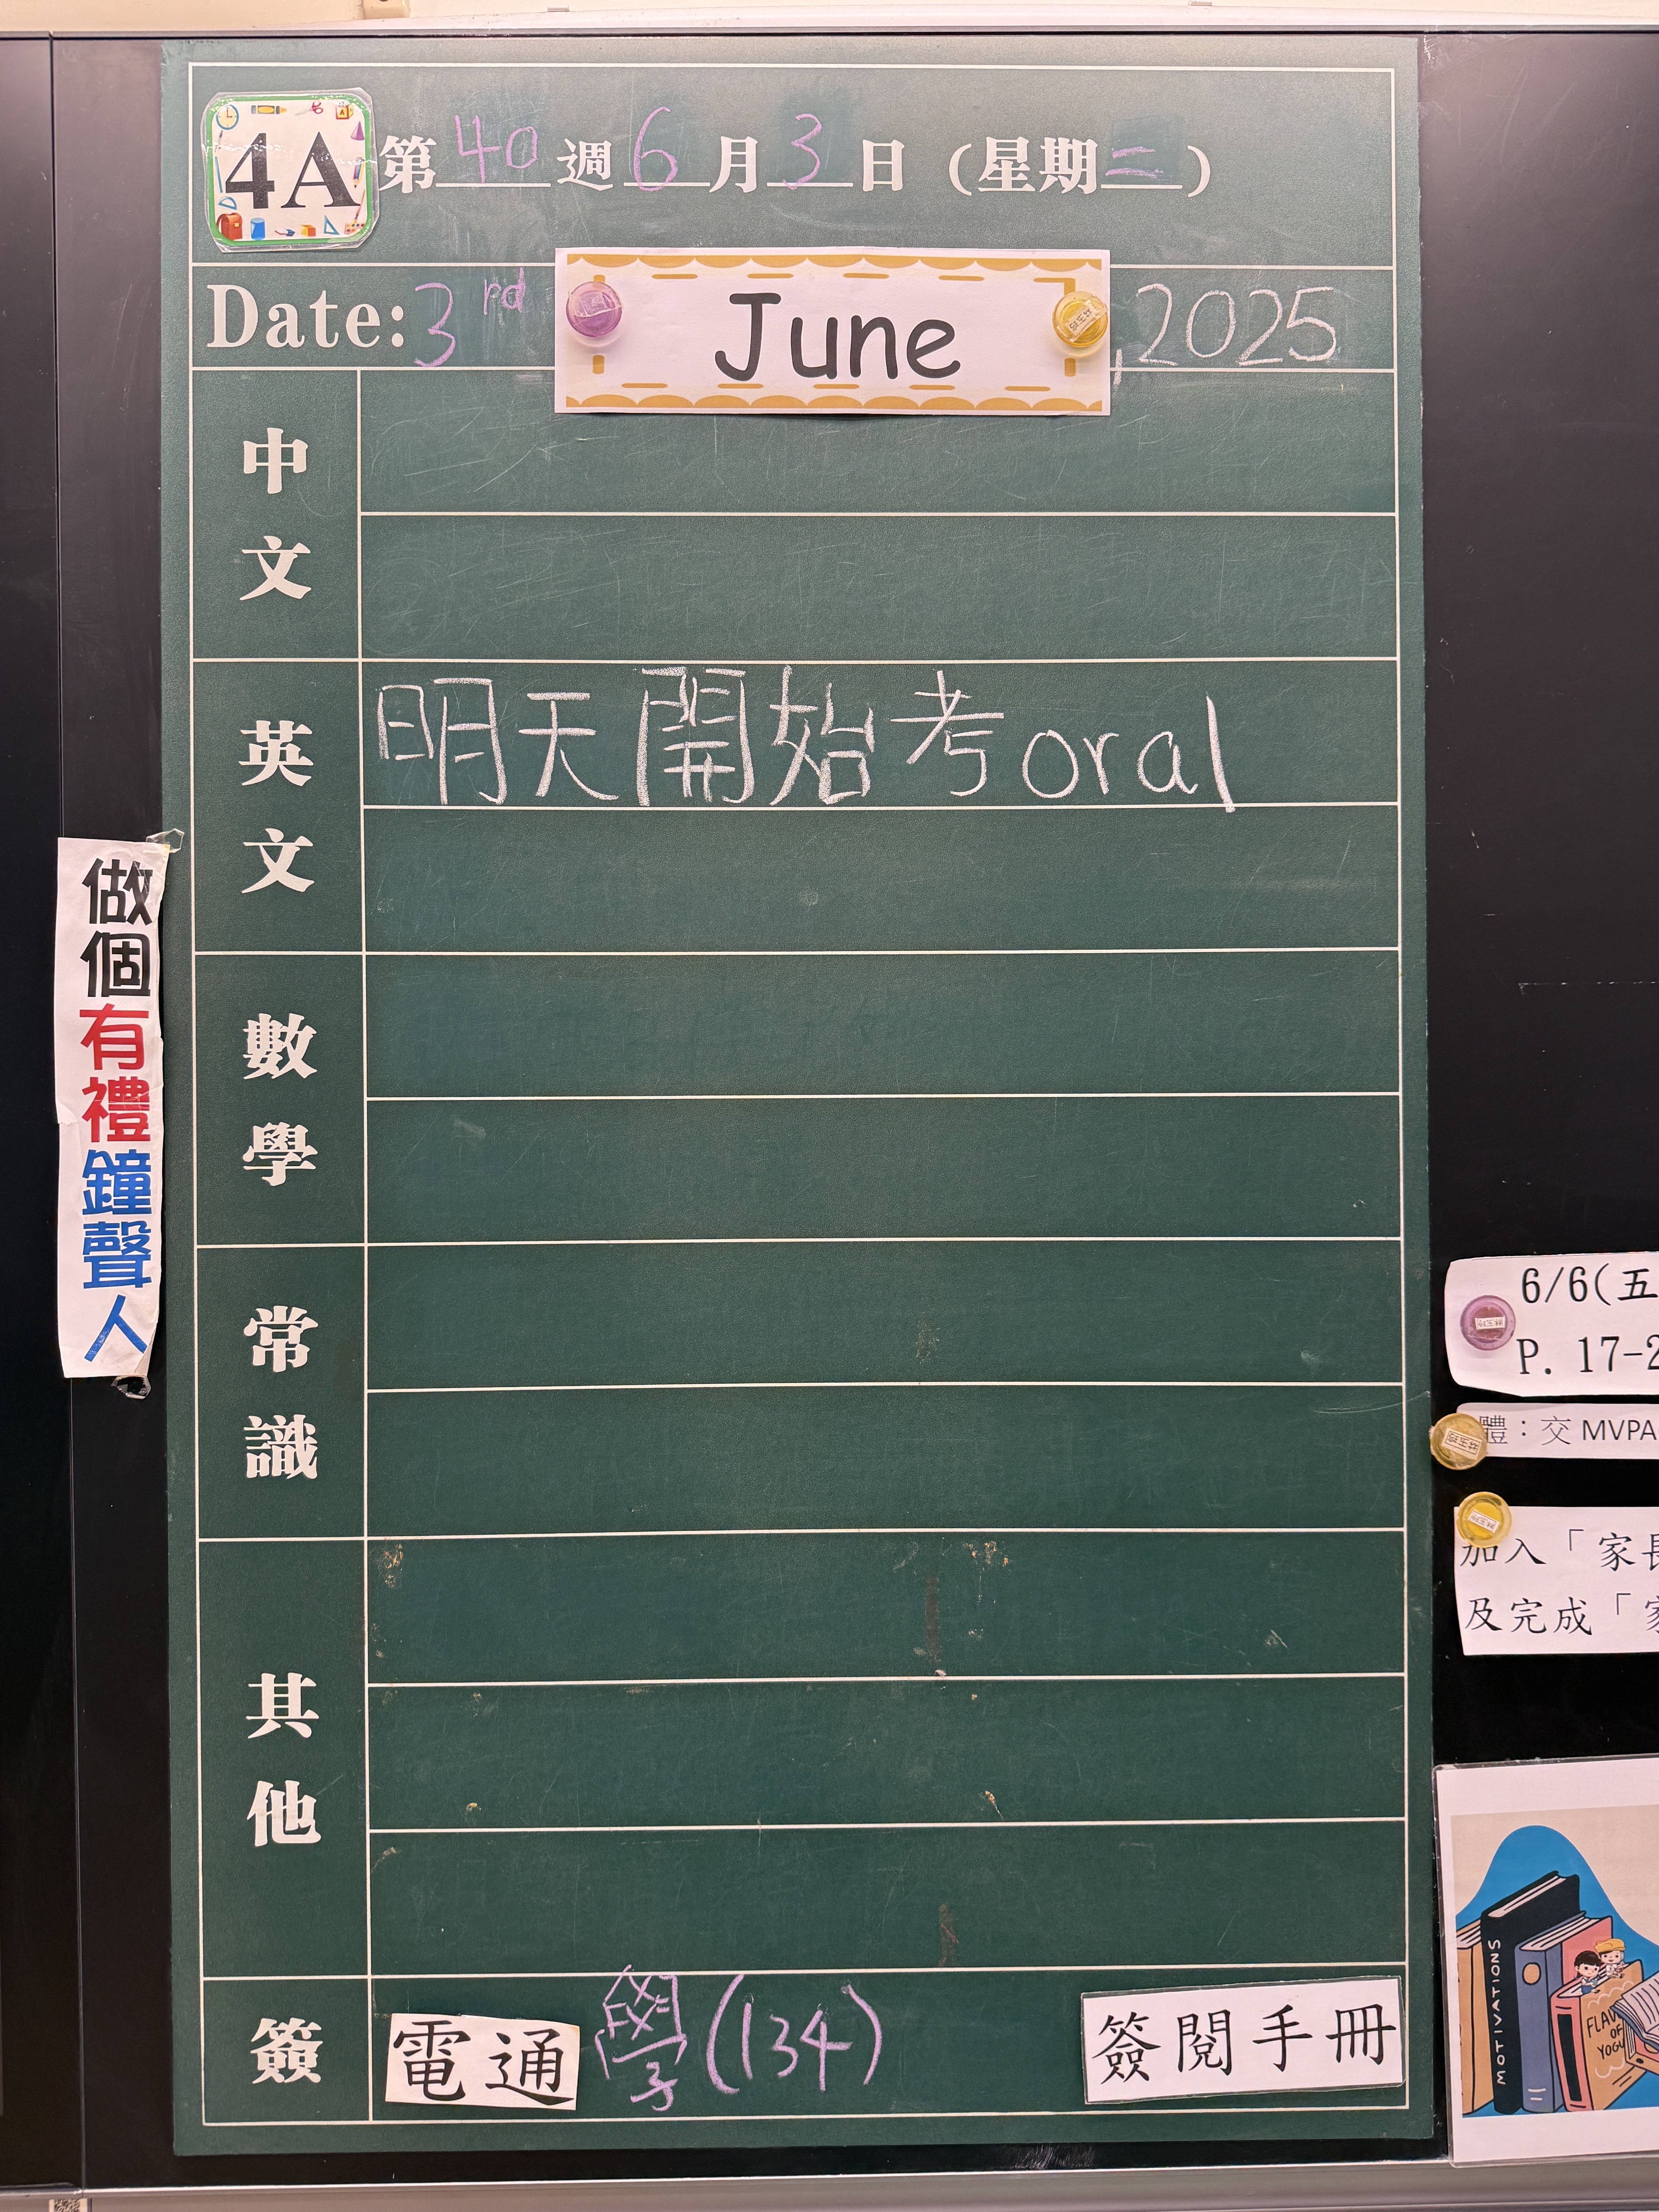 4A 第40週6月3日 (星期二)
Date: 3rd June, 2025
中文
英文
明天開始考oral
數學
常識
其他
簽
電通 學(134) 簽閱手冊
做個有禮鐘聲人
6/6(五
P. 17-2
體：交 MVPA
加入「家長
及完成「家
MOTIVATIONS
FLAV
OF
YOGU